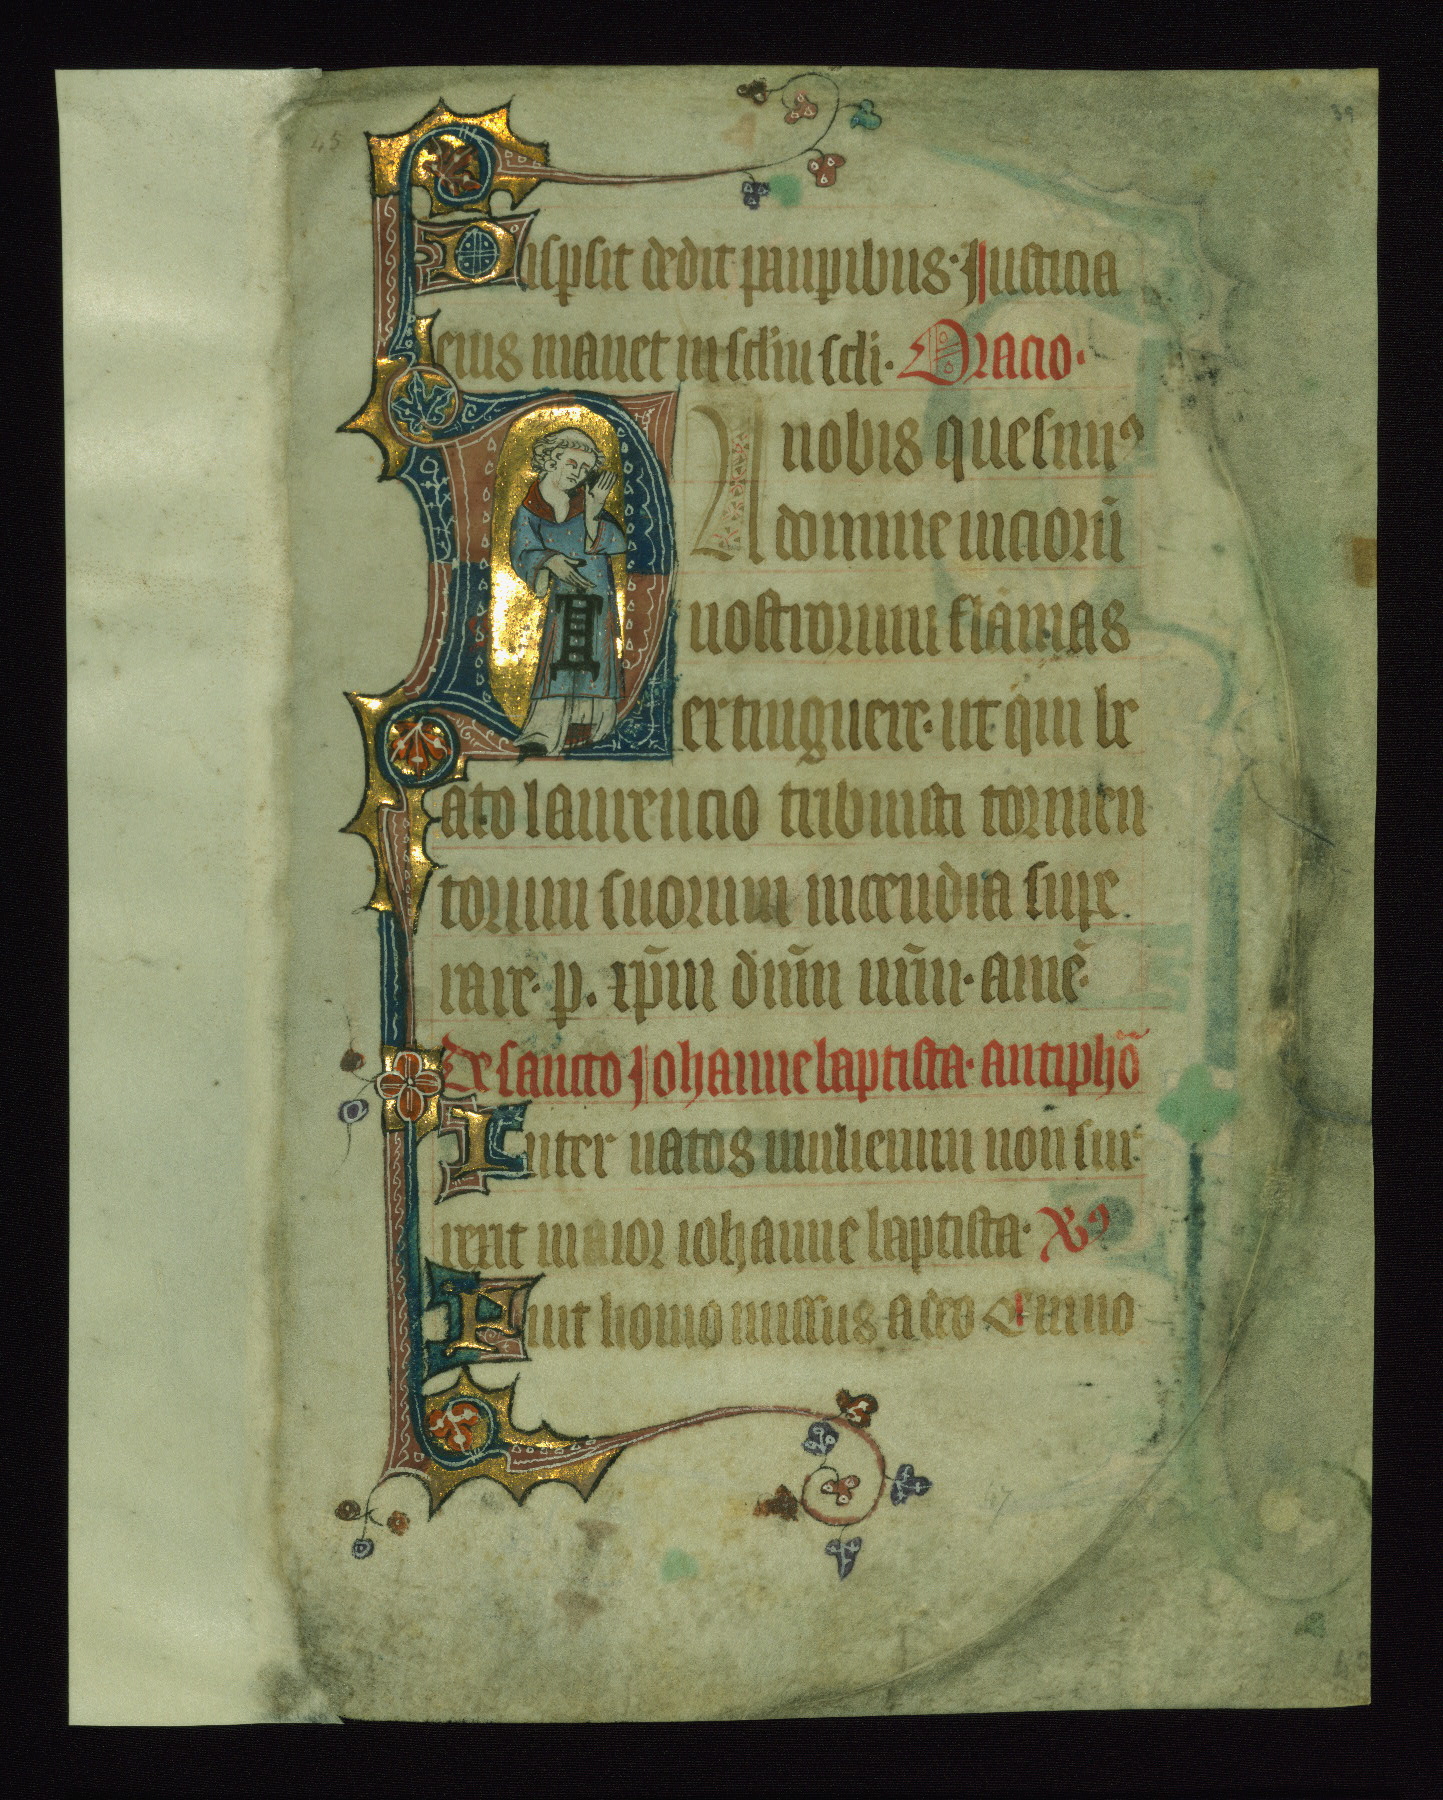 45
39
Disp̲sit dedit paup̲ibus. Justicia
eius manet in sc̄lm sc̄li. Oracio.
DA nobis quesumꝰ
domine uiciorū
nostrorum flāmas
extinguere. ut qui be
ato laurencio tribuisti tormen
torum suorum incendia supe
rare. p. xp̄m dn̄m nr̄m. amē.
De sancto Johanne baptista. antiphō
Inter natos mulierum non sur
rexit maior iohanne baptista. V̾
Fuit homo missus a deo Cui no
47